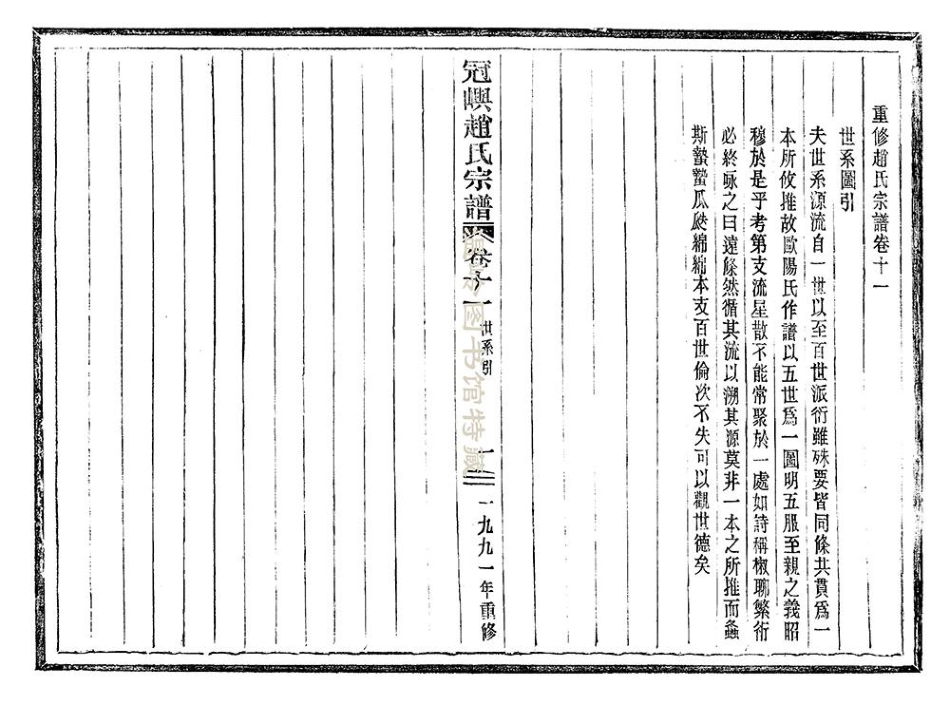 重修趙氏宗譜卷十一
世系圖引
夫世系源流自一世以至百世派衍雖殊要皆同條共貫爲一
本所攸推故歐陽氏作譜以五世爲一圖明五服至親之義昭
穆於是乎考第支流星散不能常聚於一處如詩稱椒聊繁衍
必終咏之曰遠條然循其流以溯其源莫非一本之所推而螽
斯蟄蟄瓜瓞綿綿本支百世倫次不失可以觀世德矣
冠嶼趙氏宗譜 卷十一 世系引 一 一九九一年重修
图书馆特藏